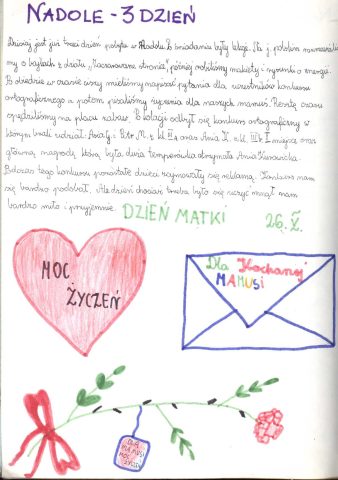 NADOLE - 3 DZIEŃ
Dzisiaj jest już trzeci dzień pobytu w Nadolu. Po śniadaniu były lekcje. Na j. polskim
o bajkach z działu „Zaczarowane stronice", później robiliśmy makiety i rysunki o energii.
Po obiedzie w czasie ciszy mieliśmy napisać pytania dla uczestników konkursu
ortograficznego a potem pisaliśmy życzenia dla naszych mamuś. Resztę czasu
spędziliśmy na placu zabaw. Po kolacji odbył się konkurs ortograficzny w
którym brali udział: kl. II a oraz Ania kl. III b I miejsce oraz
główną nagrodę, którą była duża temperówka otrzymała Ania
Podczas tego konkursu pozostałe dzieci zajmowały się reklamą. Konkurs nam
się bardzo podobał. Ale dzień chociaż trzeba było się uczyć minął nam
bardzo miło i przyjemnie.
DZIEŃ MATKI 26. V.
MOC
ŻYCZEŃ
Dla Kochanej
MAMUSI
DLA
MAMUSI
MOC
ŻYCZEŃ